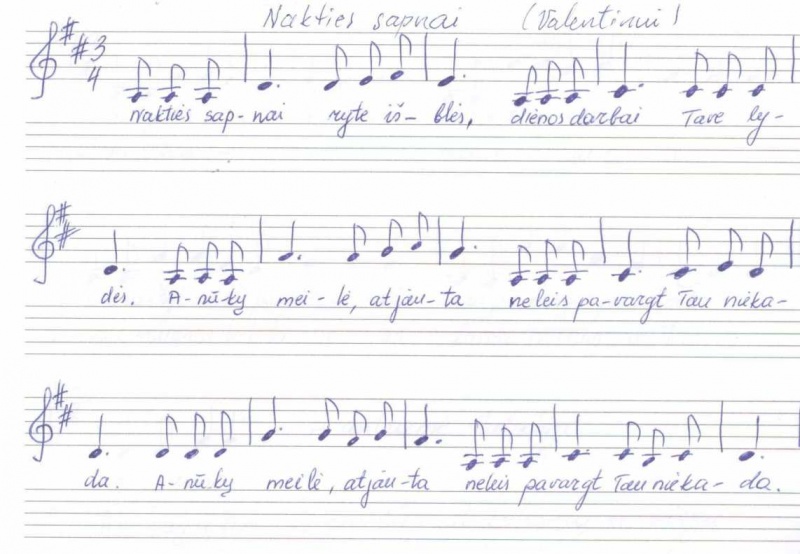 Nakties sapnai (Valentinui)
3
4
Nakties sap-nai ryte iš-blės, dienos darbai Tave ly-
dės. A-nū-kų mei-lė, atjau-ta neleis pa-vargt Tau nieka-
da. A-nū-kų meilė, atjau-ta neleis pavargt Tau nieka-da.